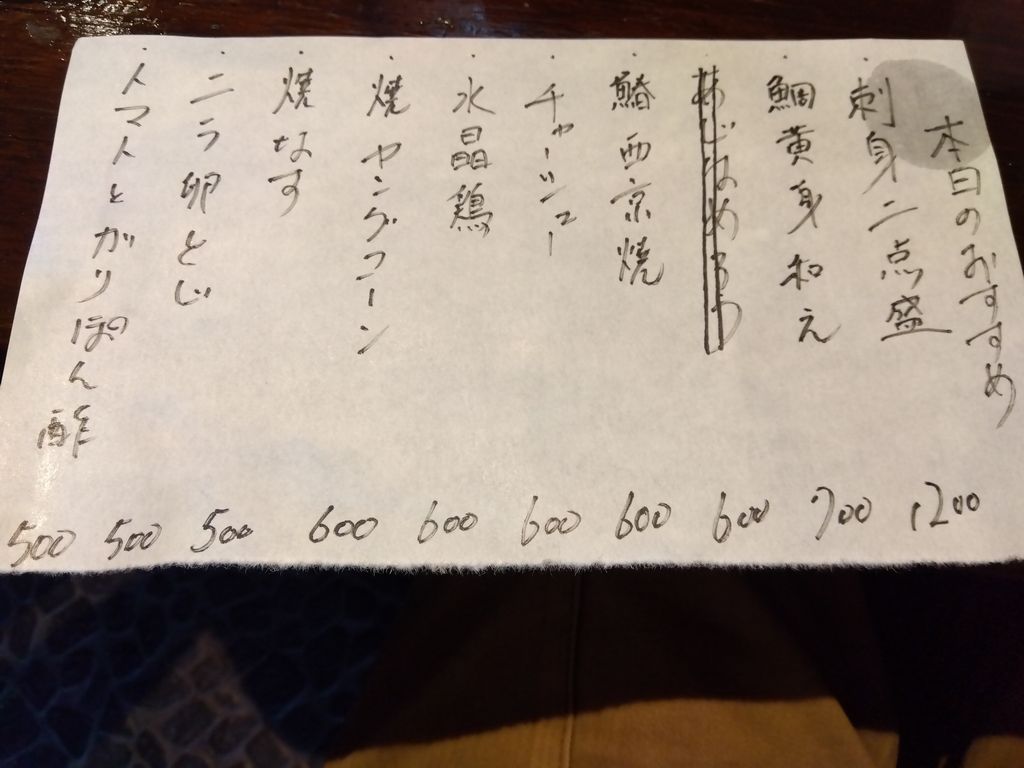 本日のおすすめ
・刺身二点盛 1200
・鯛黄身和え 700
・あじなめろう 600
・鰆西京焼 600
・チャーシュー 600
・水晶鶏 600
・焼ヤングコーン 600
・焼なす 500
・ニラ卵とじ 500
・トマトとガリぽん酢 500